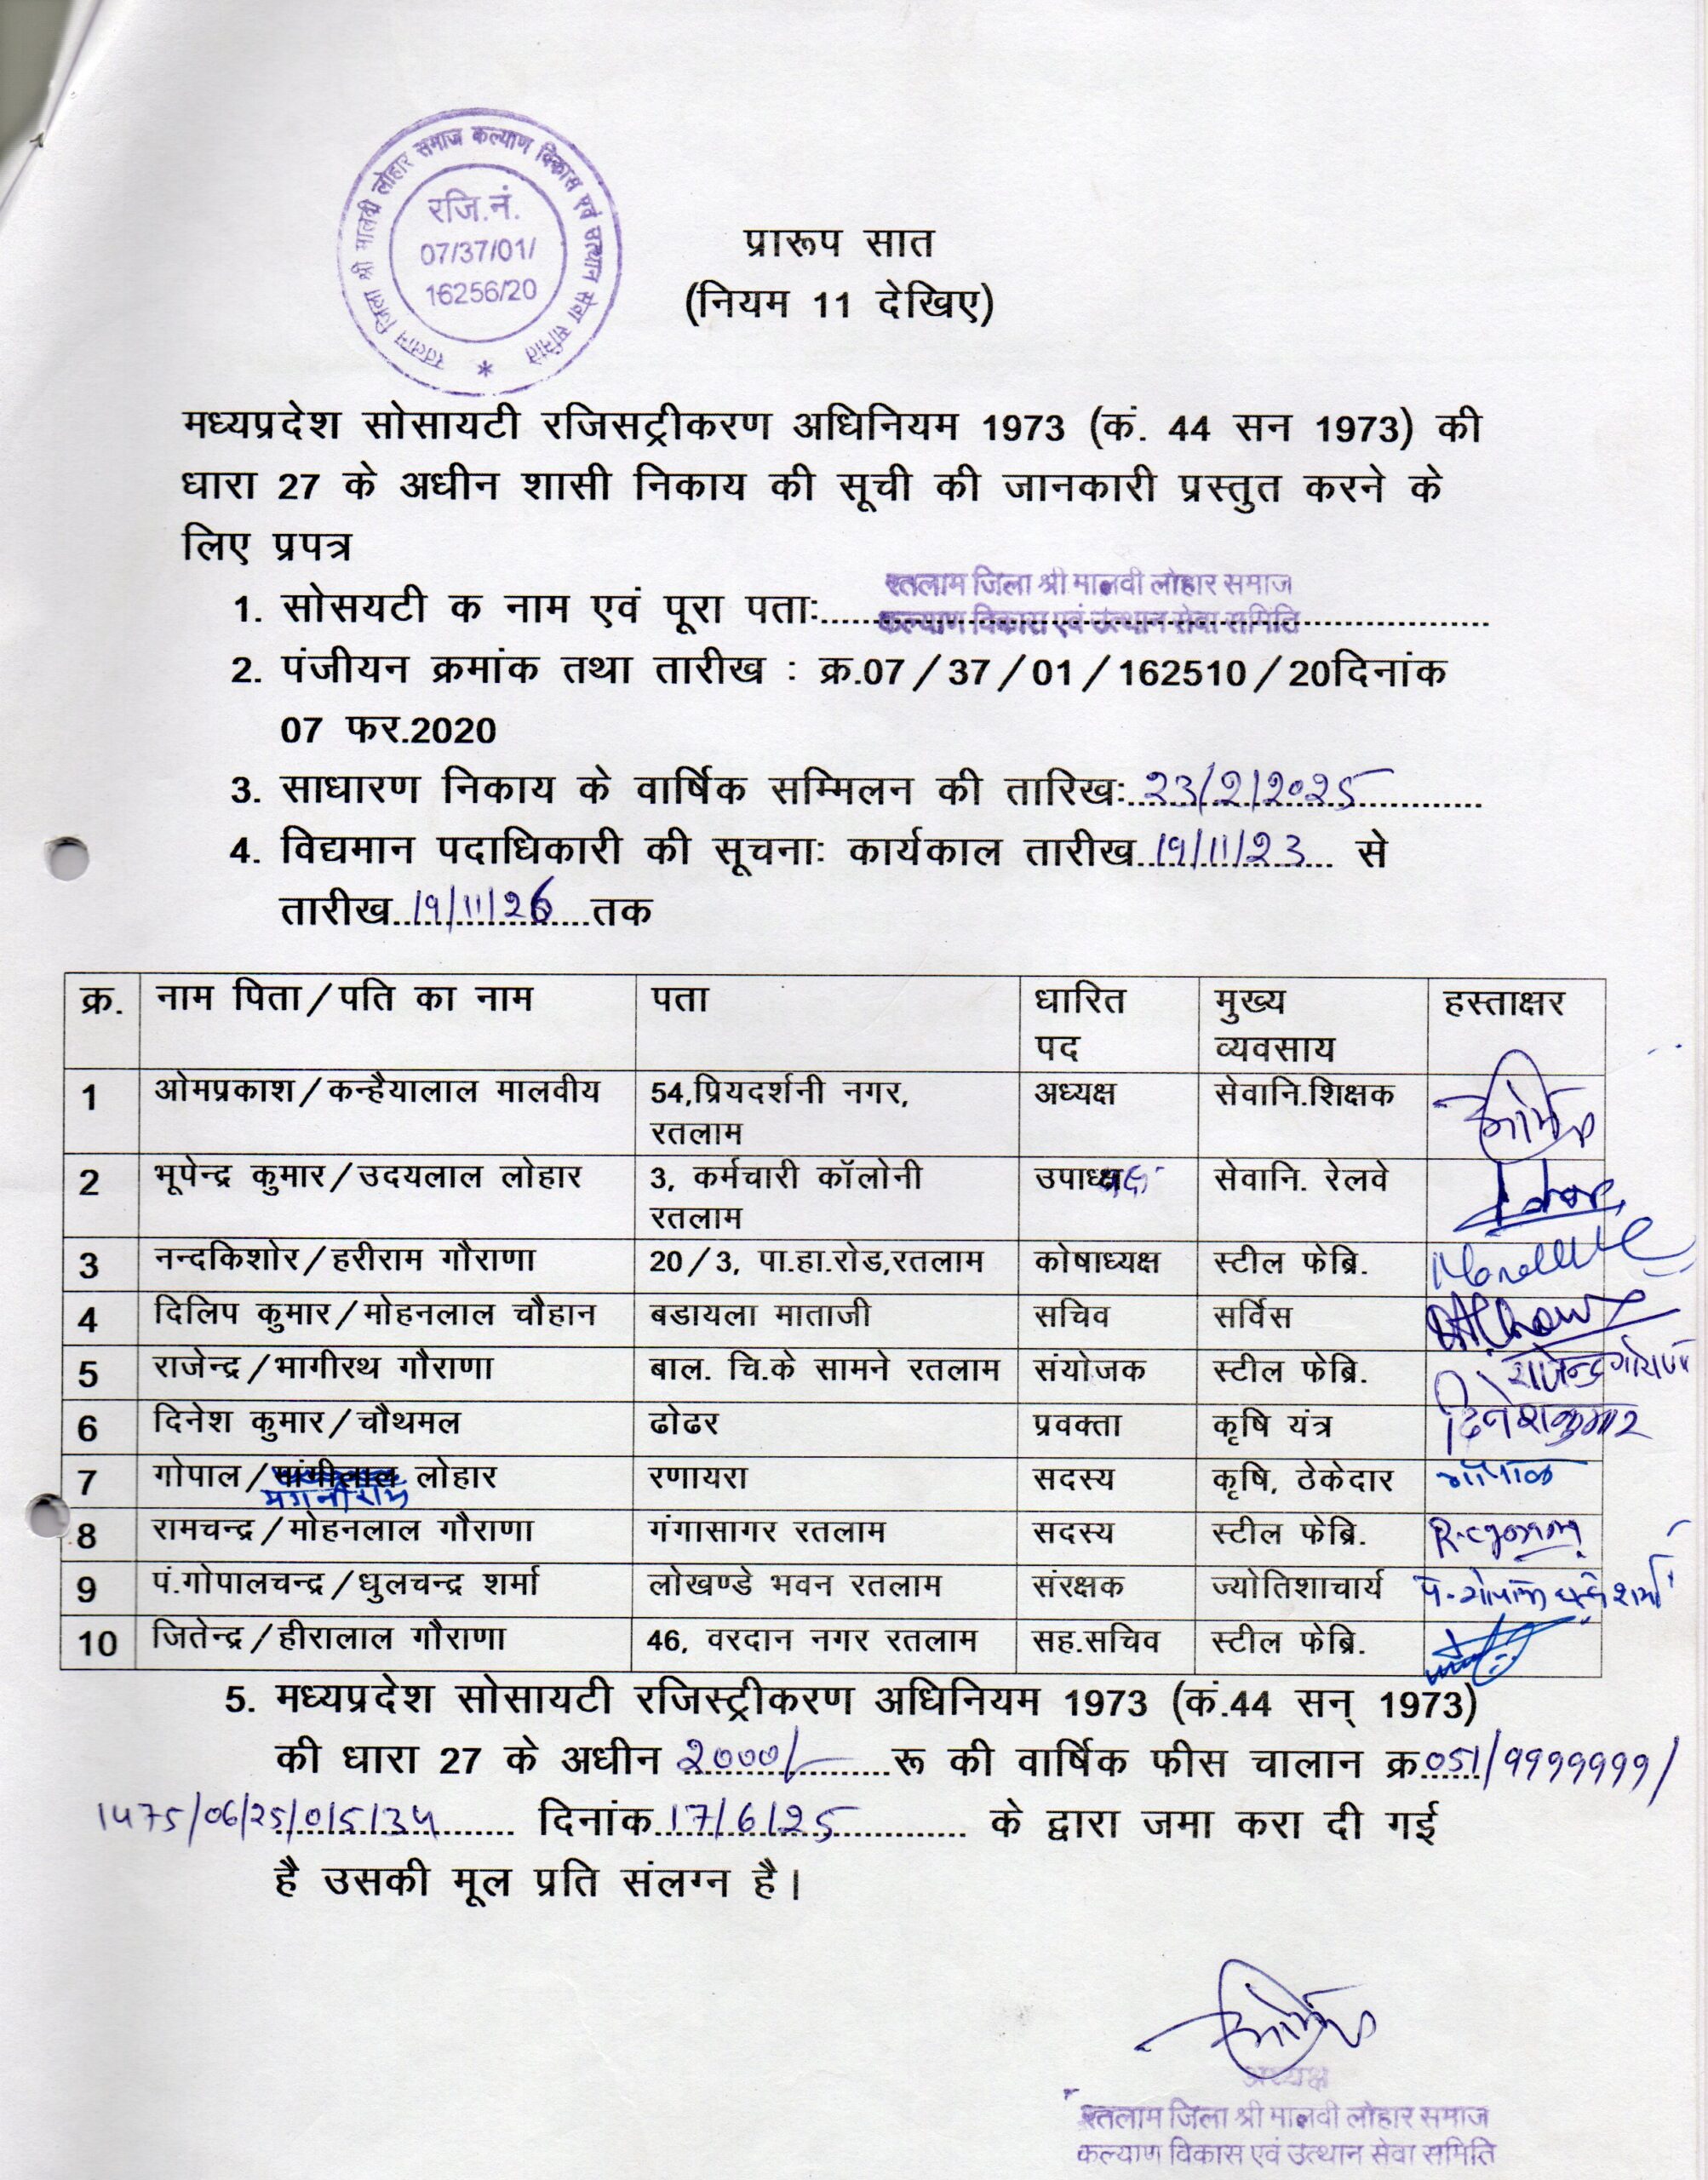 रतलाम जिला श्री मालवी लोहार समाज कल्याण विकास एवं उत्थान सेवा समिति
रजि.नं.
07/37/01/
16256/20
*
प्रारूप सात
(नियम 11 देखिए)
मध्यप्रदेश सोसायटी रजिसट्रीकरण अधिनियम 1973 (कं. 44 सन 1973) की
धारा 27 के अधीन शासी निकाय की सूची की जानकारी प्रस्तुत करने के
लिए प्रपत्र
रतलाम जिला श्री मालवी लोहार समाज
1. सोसयटी क नाम एवं पूरा पताः कल्याण विकास एवं उत्थान सेवा समिति
2. पंजीयन क्रमांक तथा तारीख : क्र.07/37/01/162510/20दिनांक
07 फर.2020
3. साधारण निकाय के वार्षिक सम्मिलन की तारिखः 23/2/2025
4. विद्यमान पदाधिकारी की सूचनाः कार्यकाल तारीख 19/11/23 से
तारीख 19/11/26 तक
क्र. नाम पिता/पति का नाम पता धारित पद मुख्य व्यवसाय हस्ताक्षर
1 ओमप्रकाश/कन्हैयालाल मालवीय 54,प्रियदर्शनी नगर, रतलाम अध्यक्ष सेवानि.शिक्षक
2 भूपेन्द्र कुमार/उदयलाल लोहार 3, कर्मचारी कॉलोनी रतलाम उपाध्यक्ष सेवानि. रेलवे
3 नन्दकिशोर/हरीराम गौराणा 20/3, पा.हा.रोड,रतलाम कोषाध्यक्ष स्टील फेब्रि.
4 दिलिप कुमार/मोहनलाल चौहान बडायला माताजी सचिव सर्विस
5 राजेन्द्र/भागीरथ गौराणा बाल. चि.के सामने रतलाम संयोजक स्टील फेब्रि. राजेन्द्र गौराणा
6 दिनेश कुमार/चौथमल ढोढर प्रवक्ता कृषि यंत्र दिनेशकुमार
7 गोपाल/मांगीलाल लोहार रणायरा सदस्य कृषि, ठेकेदार गोपाल
मगनीराम
8 रामचन्द्र/मोहनलाल गौराणा गंगासागर रतलाम सदस्य स्टील फेब्रि.
9 पं.गोपालचन्द्र/धुलचन्द्र शर्मा लोखण्डे भवन रतलाम संरक्षक ज्योतिशाचार्य पं. गोपाल चन्द्र शर्मा
10 जितेन्द्र/हीरालाल गौराणा 46, वरदान नगर रतलाम सह.सचिव स्टील फेब्रि.
5. मध्यप्रदेश सोसायटी रजिस्ट्रीकरण अधिनियम 1973 (कं.44 सन् 1973)
की धारा 27 के अधीन 2000/- रू की वार्षिक फीस चालान क्र 051/9999999/
1475/06/25/015134 दिनांक 17/6/25 के द्वारा जमा करा दी गई
है उसकी मूल प्रति संलग्न है।
अध्यक्ष
रतलाम जिला श्री मालवी लोहार समाज
कल्याण विकास एवं उत्थान सेवा समिति